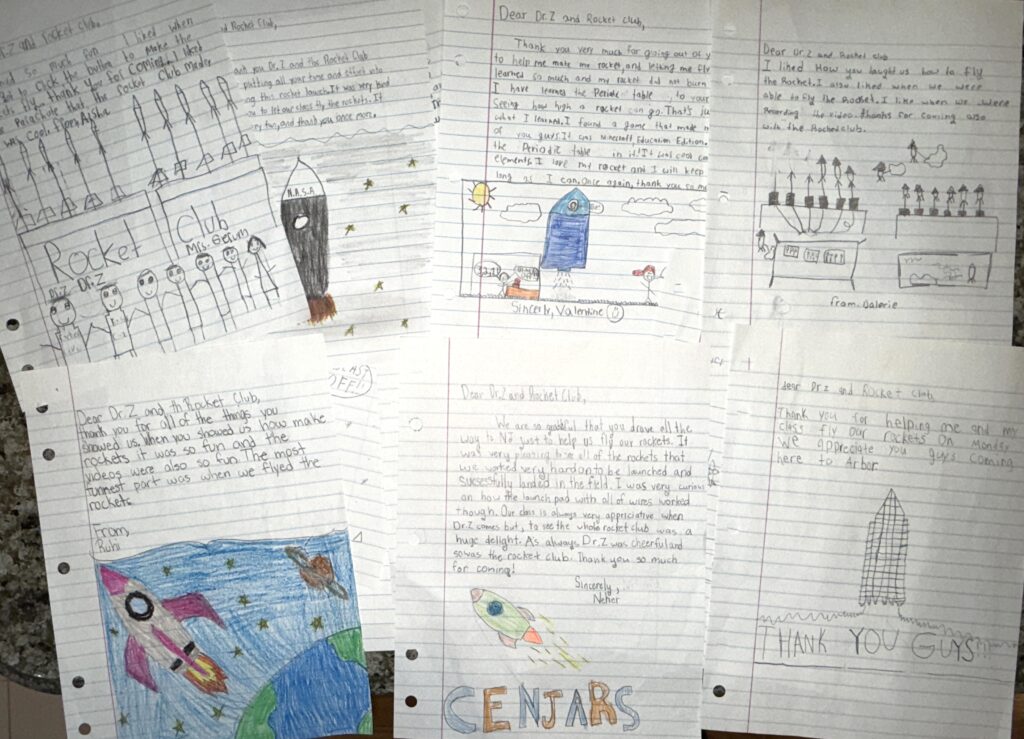 Dr.Z and Rocket Club,
so much fun I liked when
to click the button to make the
fly. Thank you for coming. I liked
Parachute that the Rocket Club made.
was cool. From Aisha
Rocket Club
Mrs. Gerum
Dr.Z Dr.Z
nd Rocket Club,
ank you Dr.Z and the Rocket Club
putting all your time and effort into
ng this rocket launch. It was very kind
ou to let our class fly the rockets. It
ery fun, and thank you once more.
N.A.S.A
BLAST
OFF!!
Dear Dr.Z and Rocket Club,
Thank you very much for going out of y
to help me make my rocket, and letting me fly
learned so much and my rocket did not burn
I have learned the Periodic table , to your
Seeing how high a rocket can go. That's ju
what I learned. I found a game that made m
of you guys. It was Minecraft Education Edition.
the Periodic table in it! It was cool
elements. I love my rocket and I will keep
long as I can. Once again, thank you so m
3,2,1!
Sincerly, Valentine
Dear Dr.Z and Rocket club
I liked How you taught us how to fly
the Rocket. I also liked when we were
able to fly the Rocket. I like when we were
Recording the video. thanks for coming also
with the Rocket club.
from. Valerie
Dear Dr.Z and th Rocket Club,
thank you for all of the things you
showed us. When you showed us how make
rockets it was so fun and the
videos were also so fun. The most
funnest part was when we flyed the
rockets.
From,
Ruhi
Dear Dr.Z and Rocket Club,
We are so grateful that you drove all the
way to NC just to help us fly our rockets. It
was very pleasing to see all of the rockets that
we worked very hard on to be launched and
sucsessfully landed in the field. I was very curious
on how the launch pad with all of wires worked
though. Our class is always very appriciative when
Dr.Z comes but, to see the whole rocket club was a
huge delight. As always Dr.Z was cheerful and
so was the rocket club. Thank you so much
for coming!
Sincerely,
CENJARS
dear Dr.Z and Rocket club,
Thank you for helping me and my
class fly our rockets on Monday
we appreciate you guys coming
here to Arbor
THANK YOU GUYS